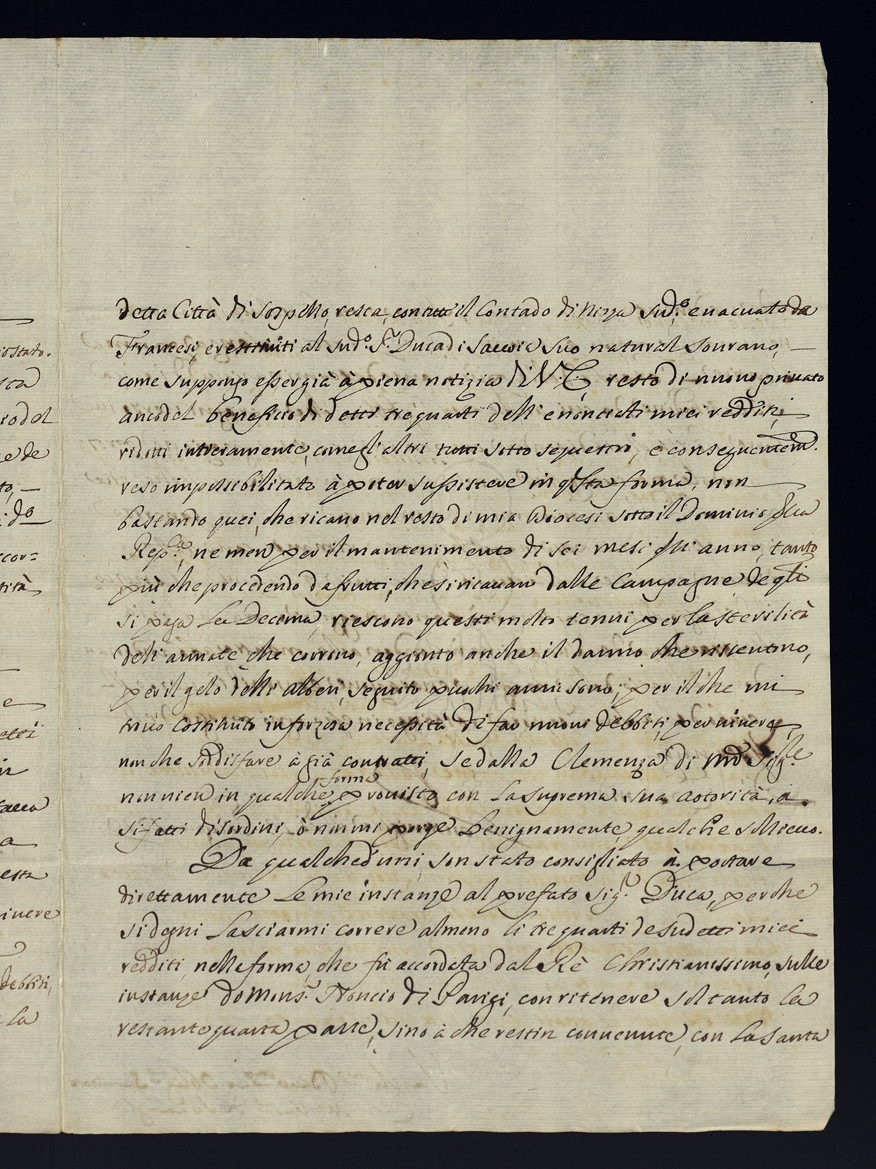 detta Città di Sospello, resta, con tutt'il Contado di Nizza sud.º evacuato da
Francesi, e restituiti al sud.º S.r Duca di Savoie suo natural sourano, —
come suppongo esser già à piena notizia di V. E, resto di nuovo privato
anco del beneficio di detti tre quarti dell'enonciati miei redditi,
ridotti intieramente, come gl'altri tutti sotto sequestro, e conseguentem.
reso impossibilitato à poter sussistere in q.sta forma, non
bastando quei, che ricavo nel resto di mia Diocesi sotto il Dominio
Rep.ca, ne men per il mantenimento di sei mesi all'anno, tanto
più che procedendo da frutti, che si ricavan dalle Campagne, de q.li
si paga La Decima, riescono questi molto tenui per la sterilità
dell'annate che corrono, aggionto anche il danno che risentono,
per il gelo delli alberi, seguito puochi anni sono; per il che mi
truo costituito in forzosa necessità di far nuovi debbiti, per vivere,
non che sodisfare à già contratti, se dalla Clemenza di
non vien in qualche forma provisto con La suprema sua autorità, à
si fatti disordini, ò non mi porge benignamente qualche sollievo.
Da qualched'uni son stato consigliato à portare
direttamente Le mie instanze al prefato Sig.r Duca, perche
si degni Lasciarmi correre almeno li tre quarti de sudetti miei
redditi, nella forma, che fù accordata dal Rè Christianissimo, sulle
instanze do Mons.r Noncio di Parigi, con ritenere sol tanto la
restante quarta parte, sino à che restin convenute, con La Santa
ostato.
sta
io del
e de
to, —
i d.º
ccor=
tità
e
etti
in
a
esta
vivere
debbiti,
la